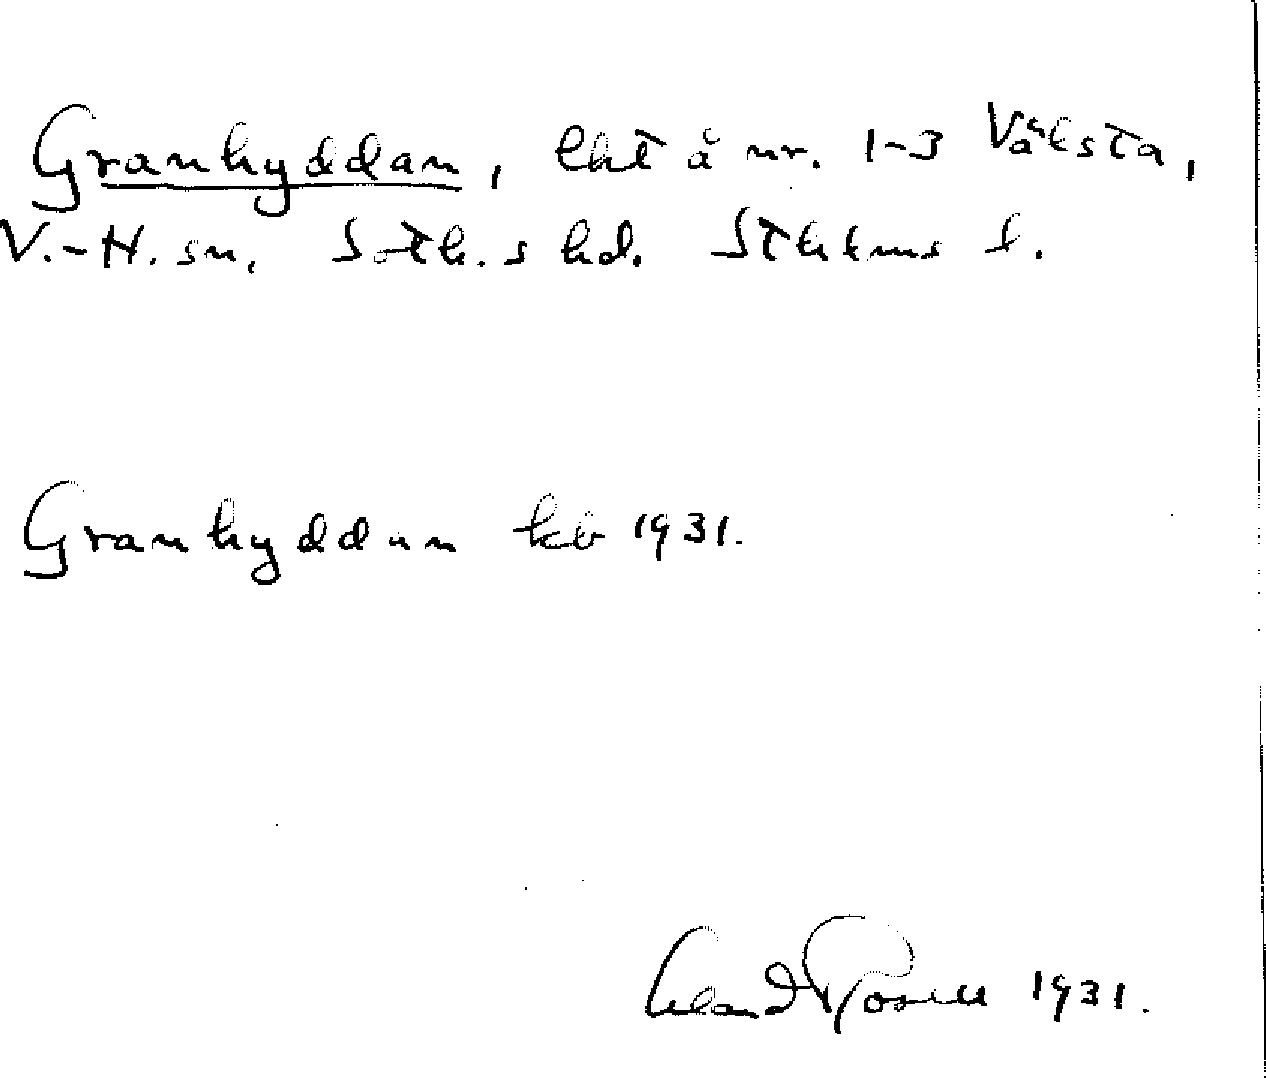 Granhyddan, lht å nr. 1-3 Välsta,
V.-H. sn. Soth.s hd. Sthlms l.
Granhyddan kb 1931.
1931.